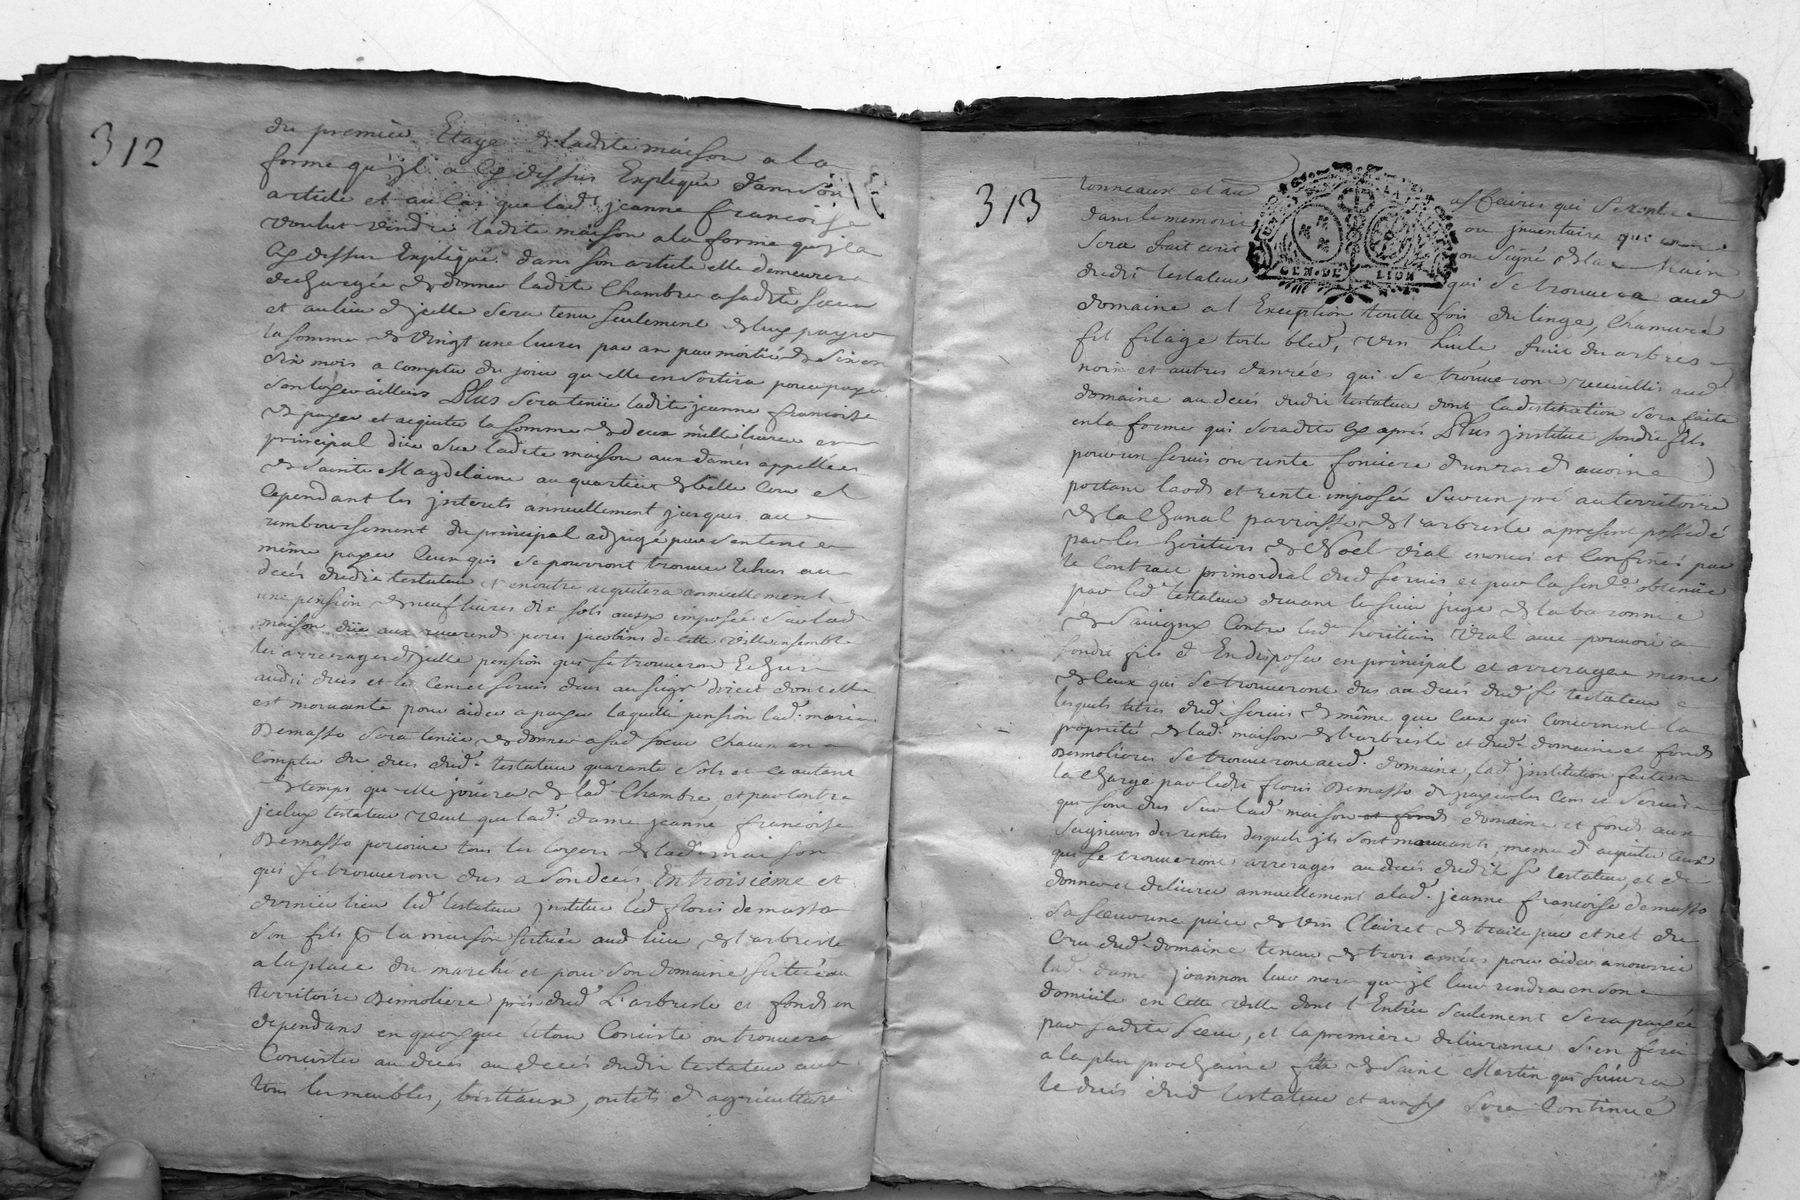 312
du premier Etage de ladite maison a la
forme qu'jl a cy dessus Expliqué dans son
article et au cas que lad. jeanne francoise
voulut vendre ladite maison a la forme qu'jl a
cy dessus Expliqué dans son article elle demeurera
dechargée de donner ladite chambre a sadite soeur
et au lieu d'jcelle sera tenu seulement de luy payer
la somme de vingt une livres par an par moitié de six en
six mois a compter du jour qu'elle en sortira pour payer
son loyer ailleurs Plus sera tenüe ladite jeanne francoise
de payer et acquiter la somme de deux mille livres en
principal düe sur ladite maison aux dames appellées
de Sainte Magdelaine au quartier de belle Cour et
cependant les jnterets annuellement jusques au
remboursement du principal adjugé par sentence
même payer ceux qui se pourront trouver Echus au
decés dudit testateur et en outre acquitera annuellement
une pension de neuf livres dix sols aussy imposée sur lad.
maison düe aux reverends peres jacobins de cette ville ensemble
les arrerages d'jcelle pension qui se trouveront Echus
audit deces et les cens et servis deus au seigr direct dont elle
est mouvante pour aider a payer laquelle pension lad. marie
Demasso sera tenüe de donner a sad. soeur chacun an a
compter du deces dud. testateur quarante sols et ce autant
de temps qu'elle joüira de lad. Chambre et par contre
jceluy testateur veut que lad. dame jeanne francoise
Demasso percoive tous les loyers de lad. maison
qui se trouveront dus a son deces En troisieme et
dernier lieu led. testateur jnstitue led. floris demasso
son fils en la maison scituée aud. lieu de l'arbresle
a la place du marché et pour son domaine scitué au
territoire Desmolieres près dud. L'arbresle et fonds en
dependans en quoy que letout Conciste ou trouvera
Concister au deces au decés dudit testateur avec
tous les meubles, bestiaux, outils d'agriculture
313
GEN. DE LION
tonneaux et au affaires qui seront
dans le memoire ou jnventaire qui en
sera fait ecrit ou signé de la Main
dudit testateur qui se trouvera aud.
domaine a l'Exception toutte fois du linge, Chanvre
fil filage toile bled, vin huile, fruit des arbres
noix et autres danrées qui se trouveront recuillis aud.
domaine au decés dudit testateur dont la destination sera faite
en la forme qui sera dite cy aprés Plus jnstitue sondit fils
pour un servis ou rente fonciere d'un ras d'avoine
portant laods et rente imposée sur un pré au territoire
de la Chanal parroisse de l'arbresle a present possedé
par les heritiers de Noel vial enoncé et Confinés par
le Contract primordial dud. servis et par la senc.e obtenüe
par led. testateur devant le sieur juge de la baronnie
de Savigny Contre lesd. heritiers vial avec pouvoir a
sondit fils d'En disposer en principal et arrerages même
de Ceux qui se trouveront dus au decés dud. sr testateur
lesquels titres dud. servis de même que Ceux qui Concernent la
propriété de lad. maison de l'arbresle et dud. domaine et fonds
Desmolieres se trouveront aud. domaine, lad. jnstitution faite a
la charge par ledit floris Demasso de payer les Cens et Servis
qui sont dus sur lad. maison et fonds domaine et fonds aux
seigneurs des rentes desquels jls sont mouvants, meme d'aquiter Ceux
qui se trouveront arreragés au decés dudit sr testateur, et de
donner et delivrer annuellement a lad. jeanne francoise demasso
sa soeur une piéce de vin Clairet de traite pur et net du
Cru dud. domaine tenue de trois années pour aider a nourrir
lad. dame joannon leur mere qu'jl leur rendra en son
domicile en Cette ville dont l'Entrée seulement sera payée
par sadite soeur, et la premiere delivrance s'en fera
a la plus prochaine fête de Saint Martin qui suivra
le decés dud. testateur et ainsy sera Continué